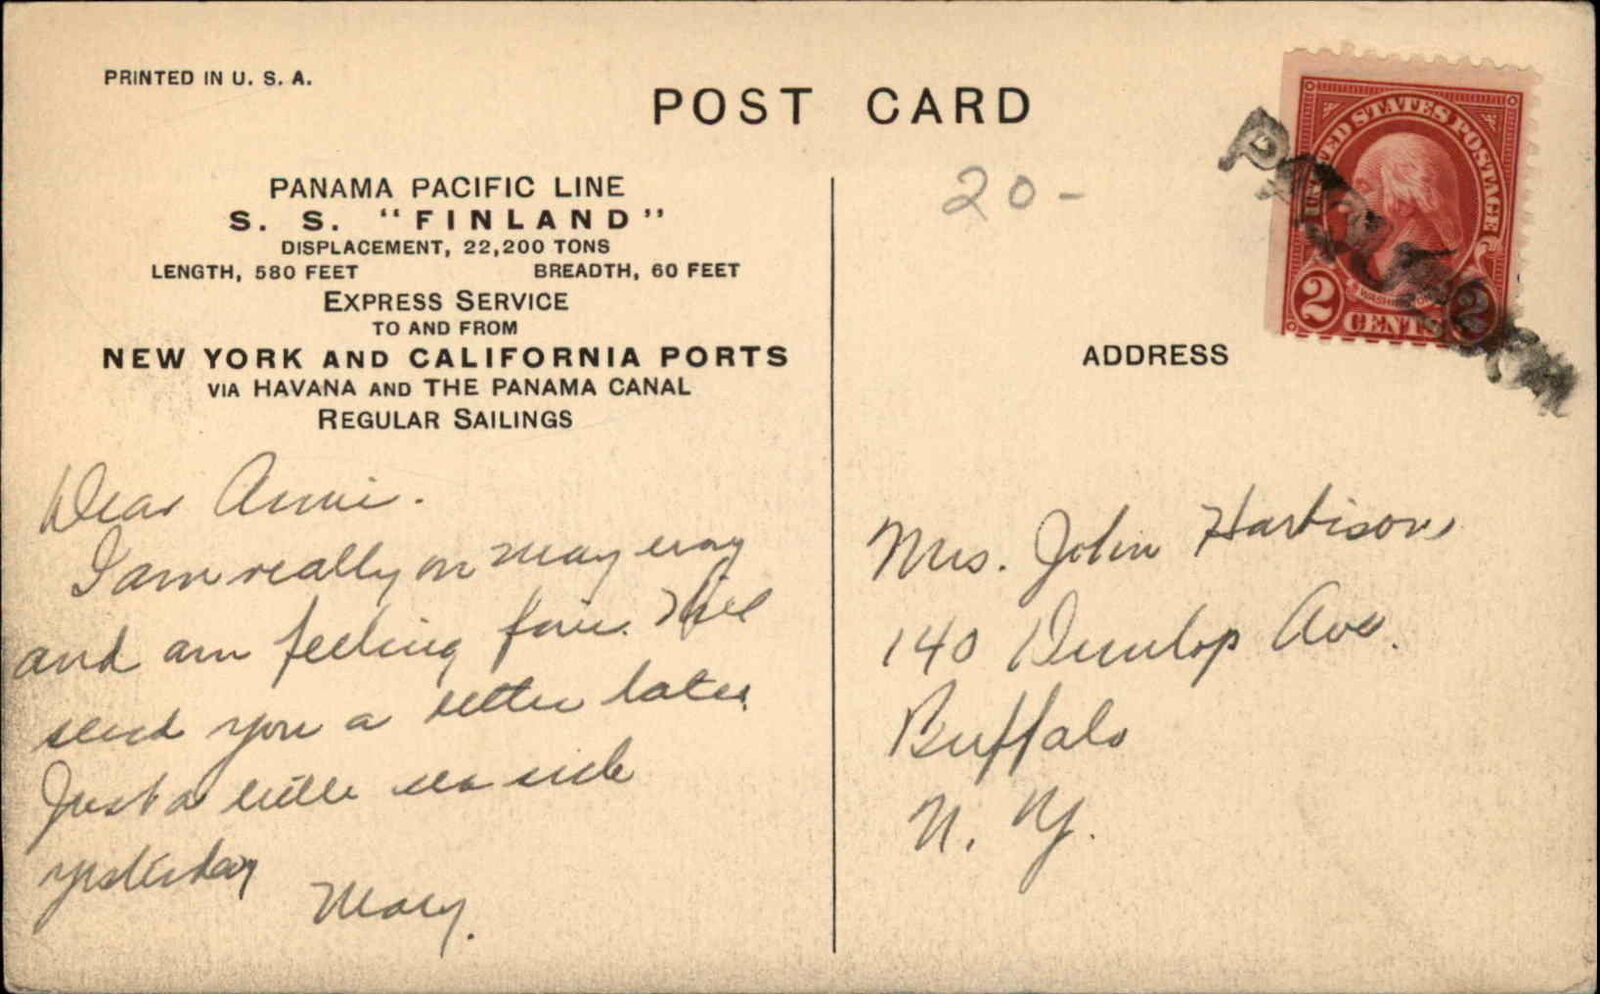 PRINTED IN U. S. A.
POST CARD
PANAMA PACIFIC LINE
S. S. "FINLAND"
DISPLACEMENT, 22,200 TONS
LENGTH, 580 FEET BREADTH, 60 FEET
EXPRESS SERVICE
TO AND FROM
NEW YORK AND CALIFORNIA PORTS
VIA HAVANA AND THE PANAMA CANAL
REGULAR SAILINGS
Dear Annie.
I am really on may way
and am feeling fine. Will
send you a letter later
Just a little sea sick
yesterday
Mary.
20-
UNITED STATES POSTAGE
WASHINGTON
2 CENTS 2
ADDRESS
Mrs. John Harbison
140 Dunlop Ave.
Buffalo
N. Y.